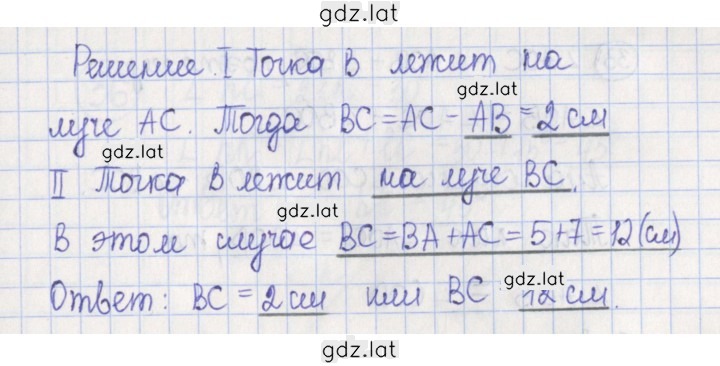 gdz.lat
Решение. I Точка В лежит на
gdz.lat
луче АС. Тогда ВС = АС - АВ = 2 см
gdz.lat
II Точка В лежит на луче ВС.
gdz.lat
В этом случае ВС = ВА + АС = 5 + 7 = 12 (см)
gdz.lat
Ответ: ВС = 2 см или ВС 12 см.
gdz.lat